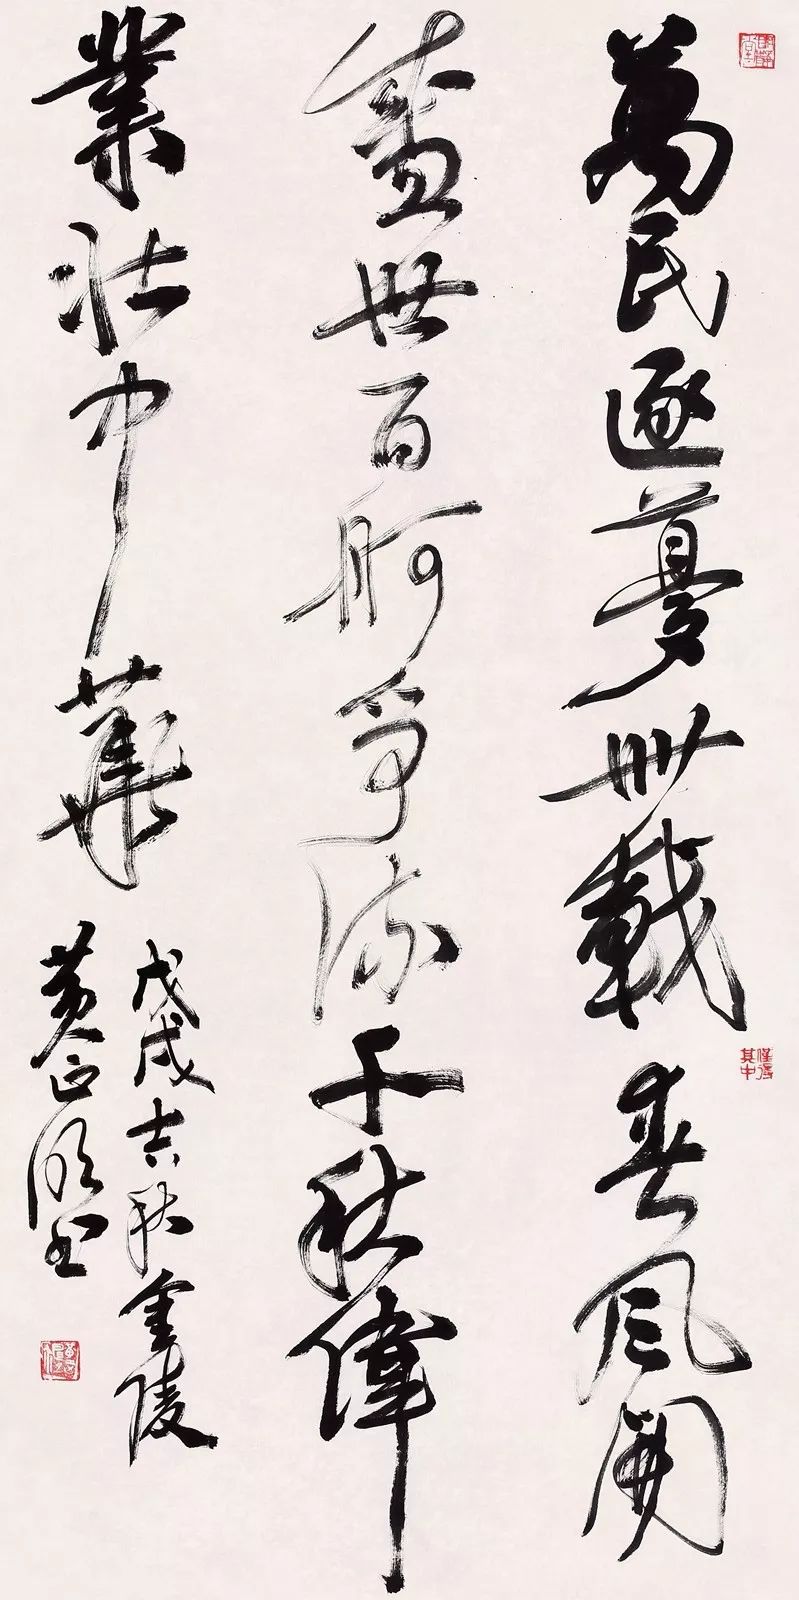 萬民逐夢卌載春風開
盛世百舸爭流千秋偉
業壯中華
戊戌吉秋金陵
黃正書
僅得其中